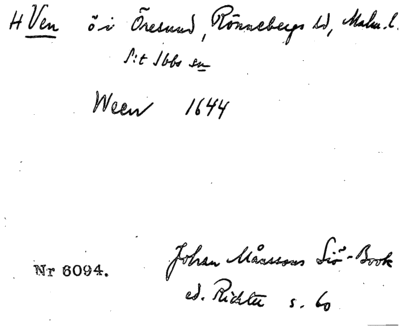 HVen ö i Öresund, Rönnebergs hd, Malm. l.
S:t Ibbs sn
Ween 1644
Johan Månssons Siö-Book
Nr 6094.
ed. Richter s. 60